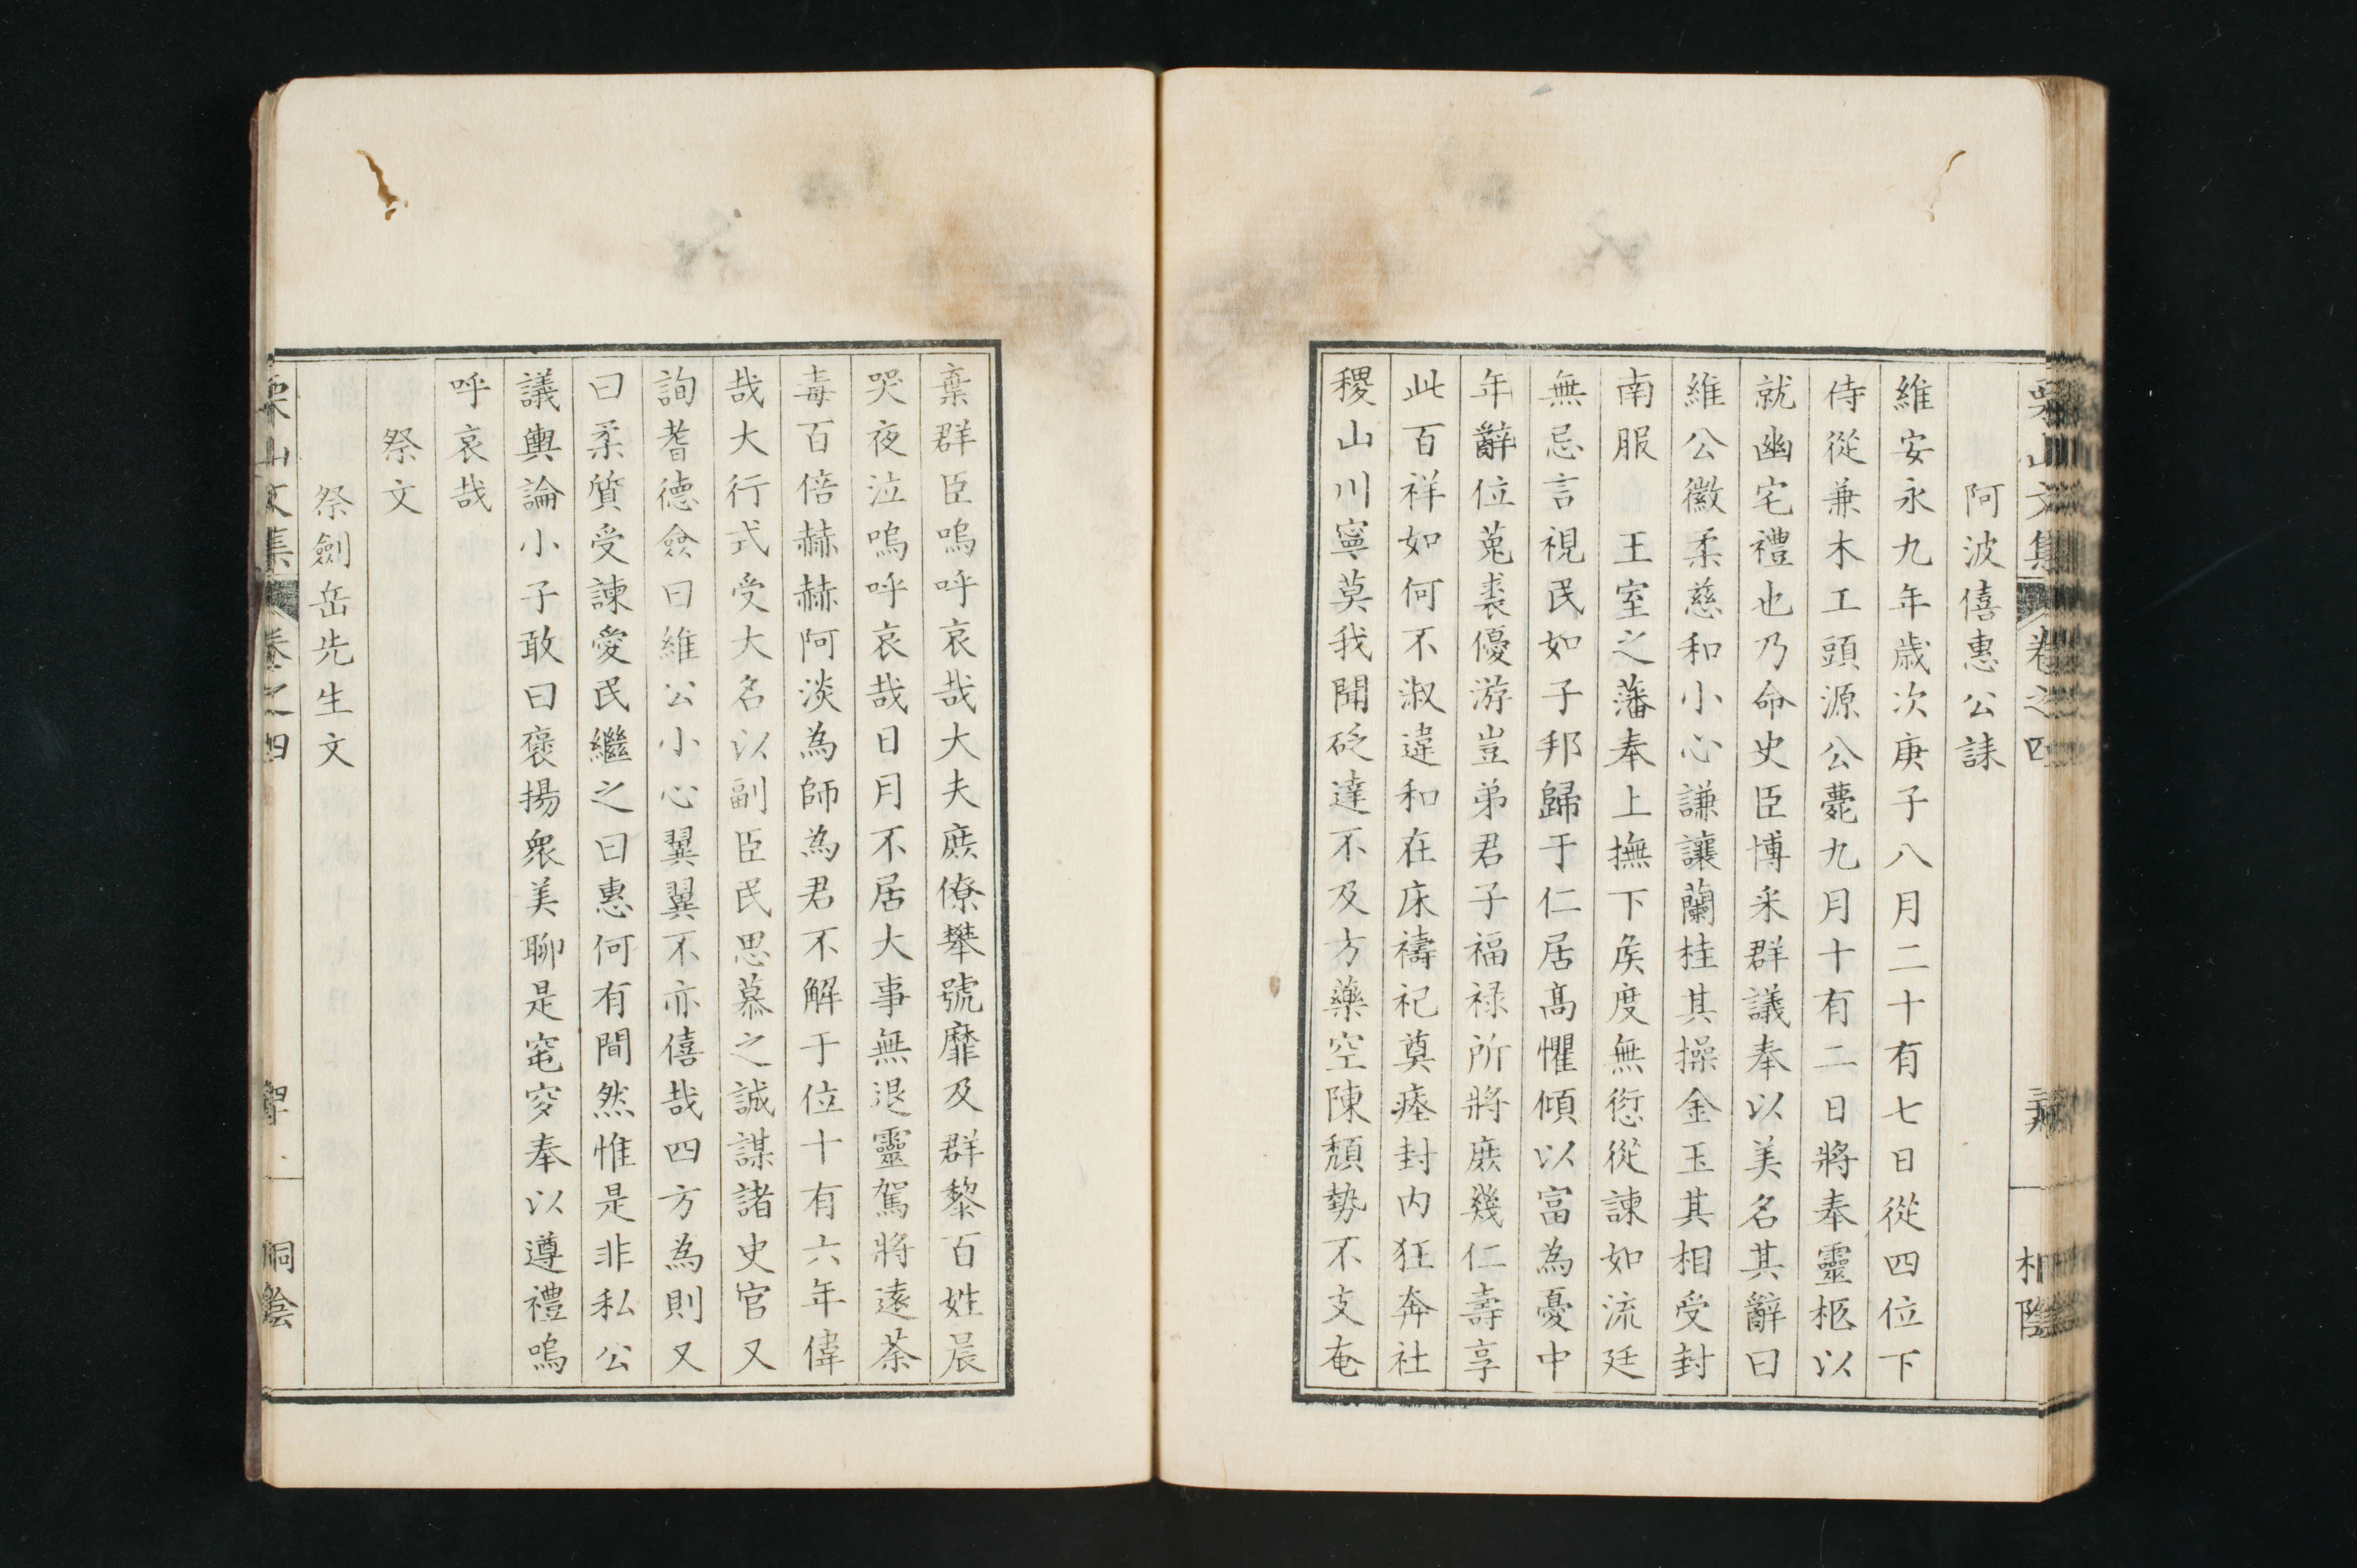 栗山文集 卷之四
阿波僖惠公誄
維安永九年歲次庚子八月二十有七日從四位下
侍從兼木工頭源公薨九月十有二日將奉靈柩以
就幽宅禮也乃命史臣博采群議奉以美名其辭曰
維公徽柔慈和小心謙讓蘭桂其操金玉其相受封
南服　王室之藩奉上撫下矦度無愆從諫如流廷
無忌言視民如子邦歸于仁居髙懼傾以富為憂中
年辭位菟裘優游豈弟君子福祿所將庶幾仁壽享
此百祥如何不淑違和在床禱祀奠瘞封内狂奔社
稷山川寧莫我聞砭達不及方藥空陳頽勢不支奄
棄群臣嗚呼哀哉大夫庶僚攀號靡及群黎百姓晨
哭夜泣嗚呼哀哉日月不居大事無退靈駕將遠荼
毒百倍赫赫阿淡為師為君不解于位十有六年偉
哉大行式受大名以副臣民思慕之誠謀諸史官又
詢耆德僉曰維公小心翼翼不亦僖哉四方為則又
曰柔質受諫愛民繼之曰惠何有間然惟是非私公
議輿論小子敢曰褒揚衆美聊是窀穸奉以遵禮嗚
呼哀哉
祭文
祭劍岳先生文
栗山文集 卷之四